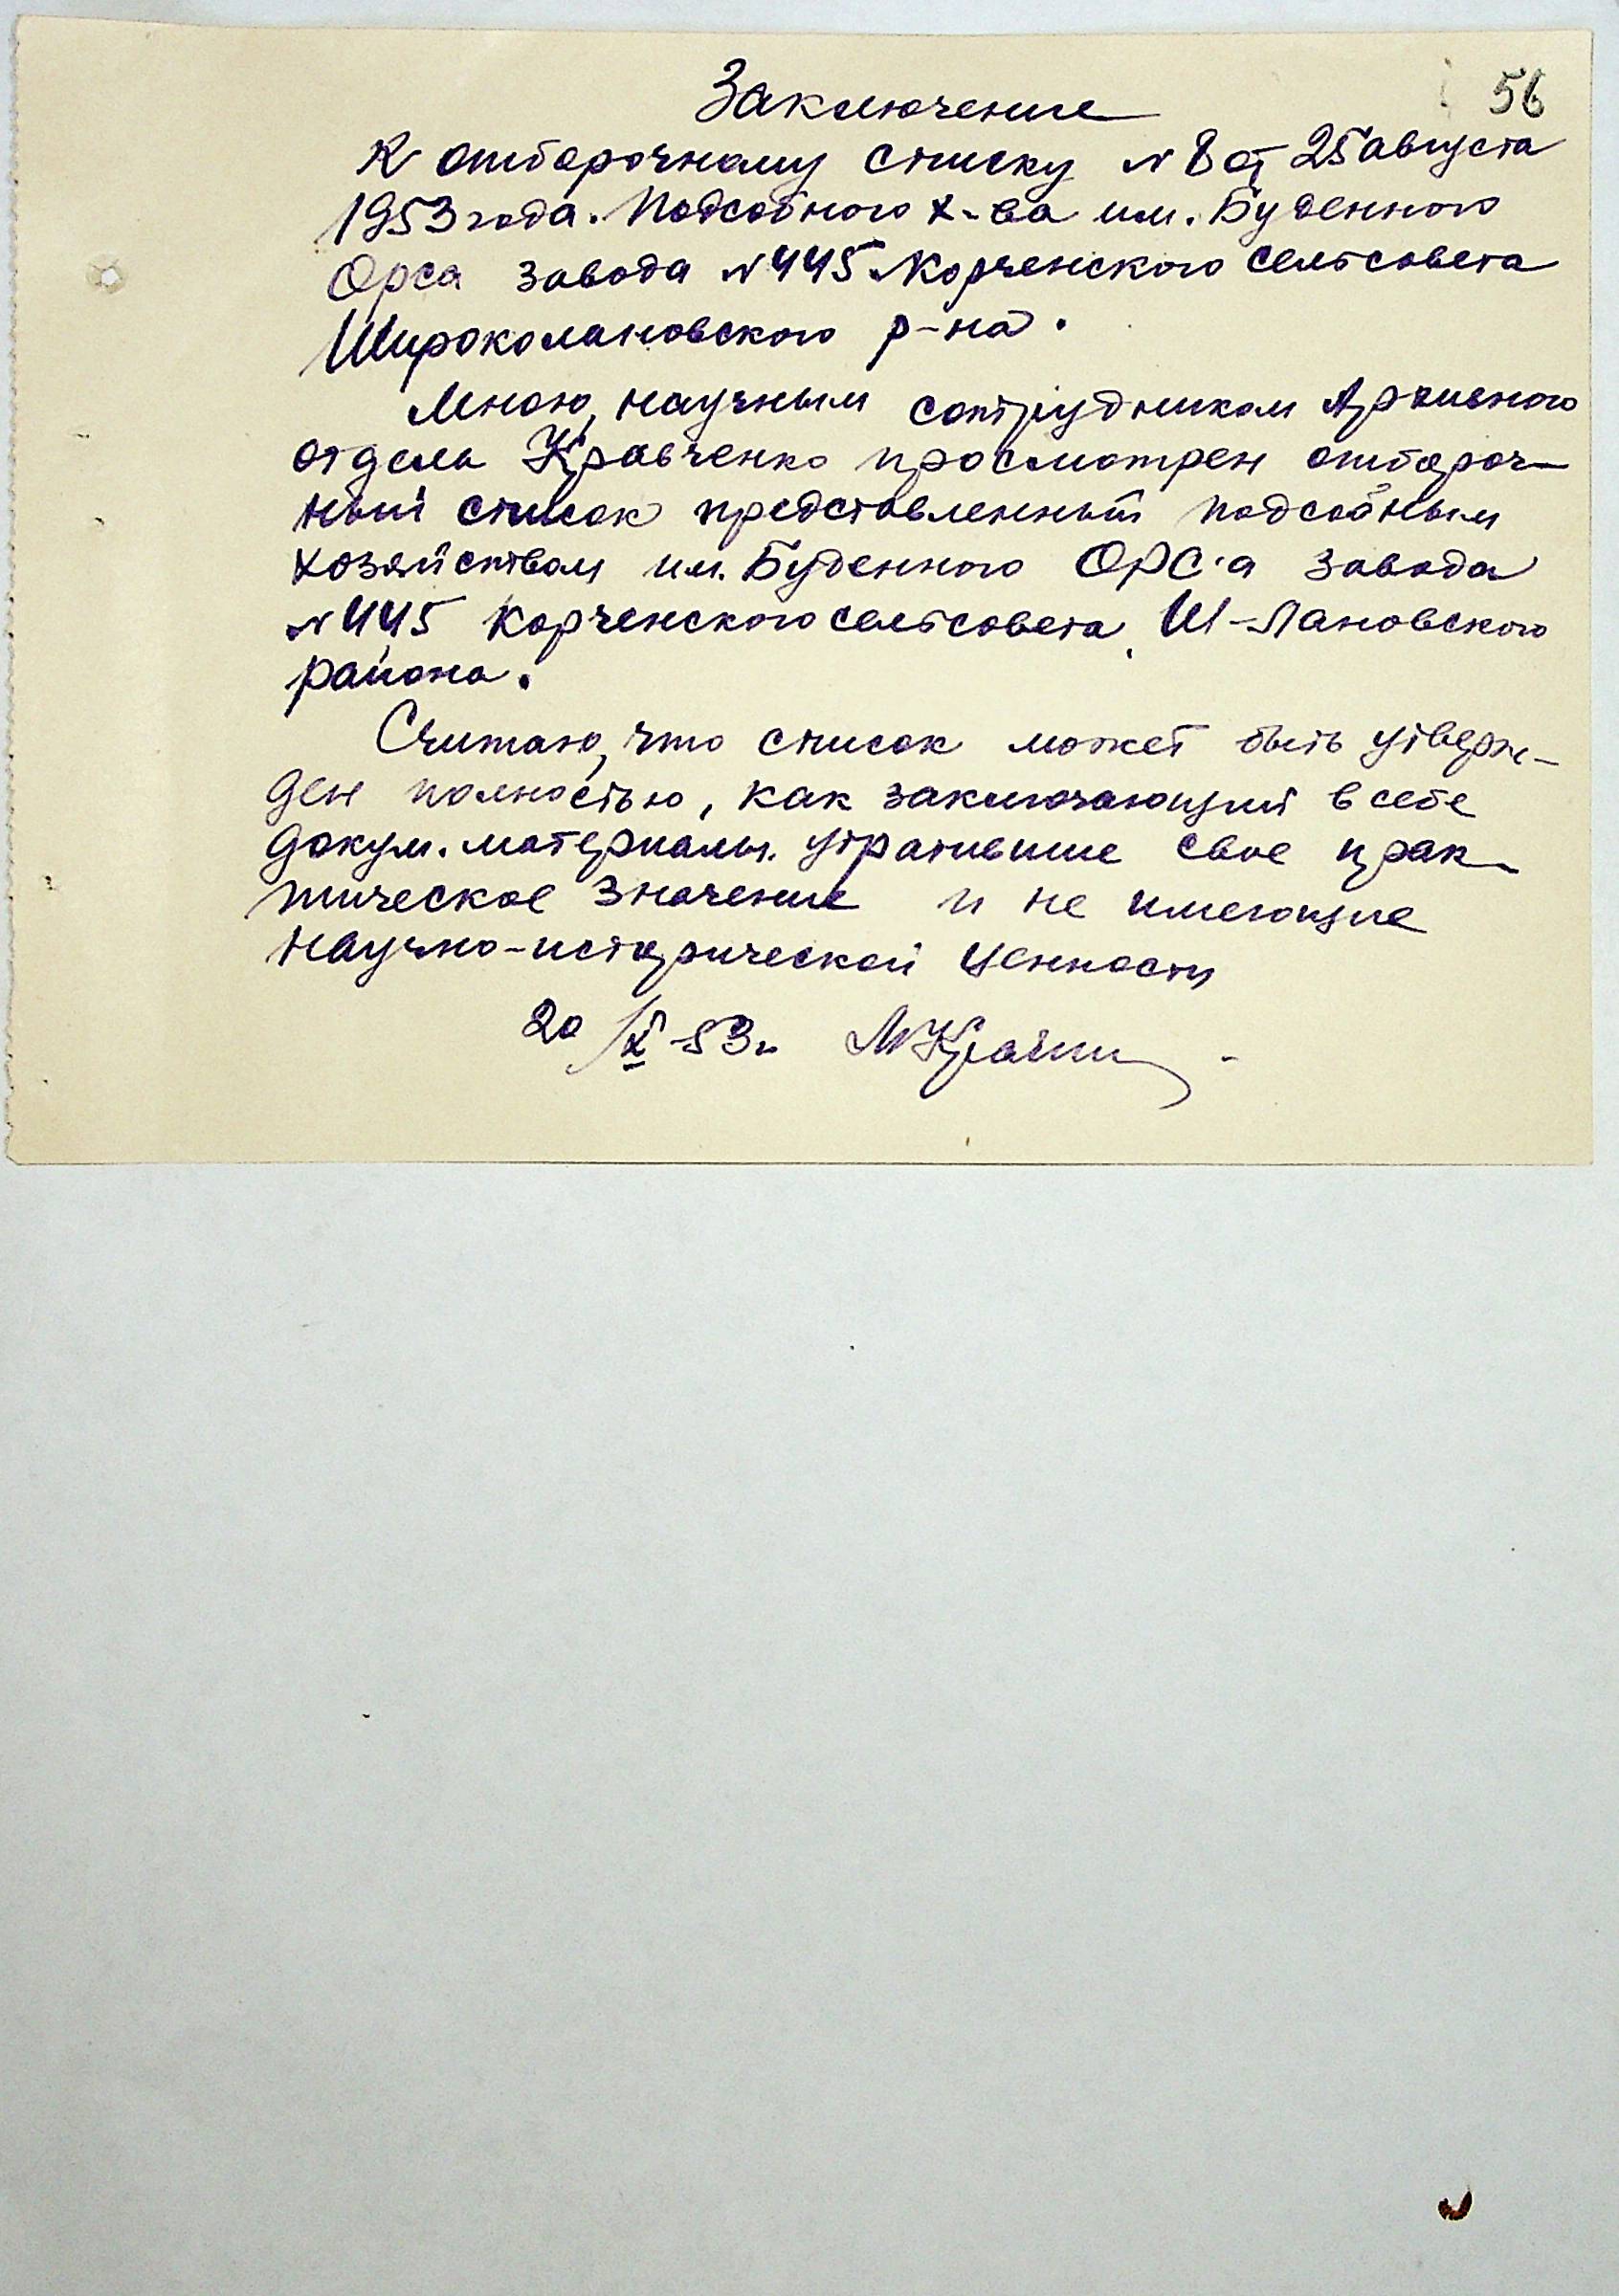 56
Заключение
К отборочному списку N 8 от 25 августа
1953 года. Подсобного х-ва им. Буденного
Орса завода N 445 Корченского сельсовета
Широколановского р-на.
Мною, научным сотрудником Архивного
отдела Кравченко просмотрен отбороч-
ный список представленный подсобным
хозяйством им. Буденного ОРС'а завода
N 445 Корченского сельсовета, Ш-Лановского
района.
Считаю, что список может быть утверж-
ден полностью, как заключающий в себе
докум. материалы. утратившие свое прак-
тическое значение и не имеющие
научно-исторической ценности
20/X-53г.